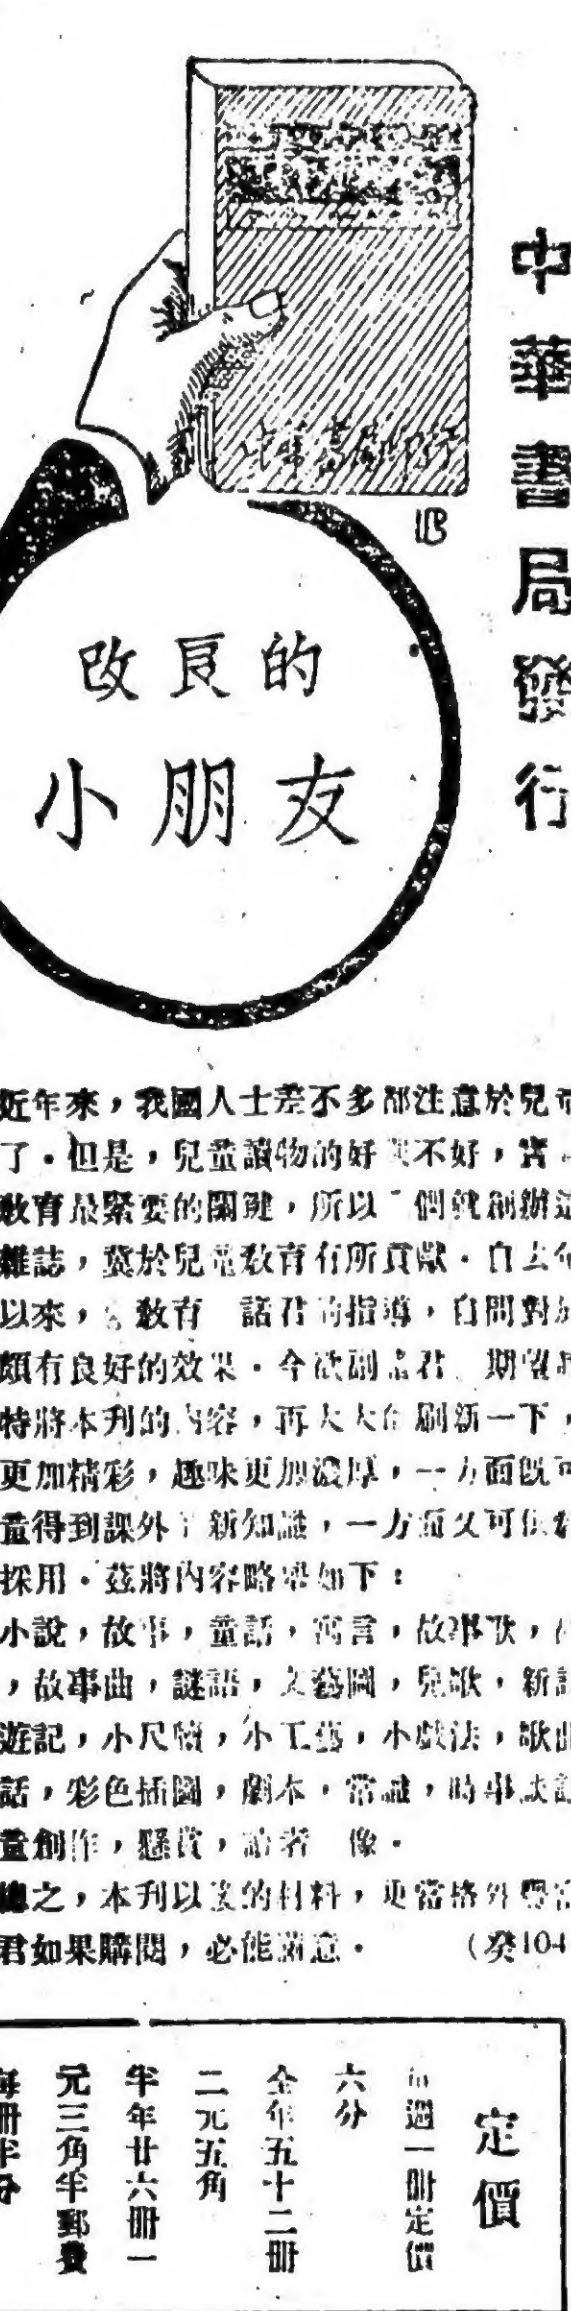 中華書局發行
中華書局印行
改良的
小朋友
近年來，我國人士差不多都注意於兒
了．但是，兒童讀物的好 不好，實
教育最緊要的關鍵，所以 們就創辦這
雜誌，冀於兒童教育有所貢獻．自去年
以來， 教育 諸君的指導，自問對於
頗有良好的效果．今欲副諸君 期望
特將本刊的內容，再大大的刷新一下，
更加精彩，趣味更加濃厚，一方面既可
童得到課外 新知識，一方面又可供
採用．茲將內容略舉如下：
小說，故事，童話，寓言，故事歌，
，故事曲，謎語，文藝圖，兒歌，新詩
遊記，小尺牘，小工藝，小戲法，歌曲
話，彩色插圖，劇本，常識，時事談話
童創作，懸賞，讀者 像．
總之，本刊以後的材料，更當格外豐富
君如果購閱，必能滿意． (癸104
定價
每週一冊定價
六分
全年五十二冊
二元五角
半年廿六冊一
元三角半郵費
每冊半分